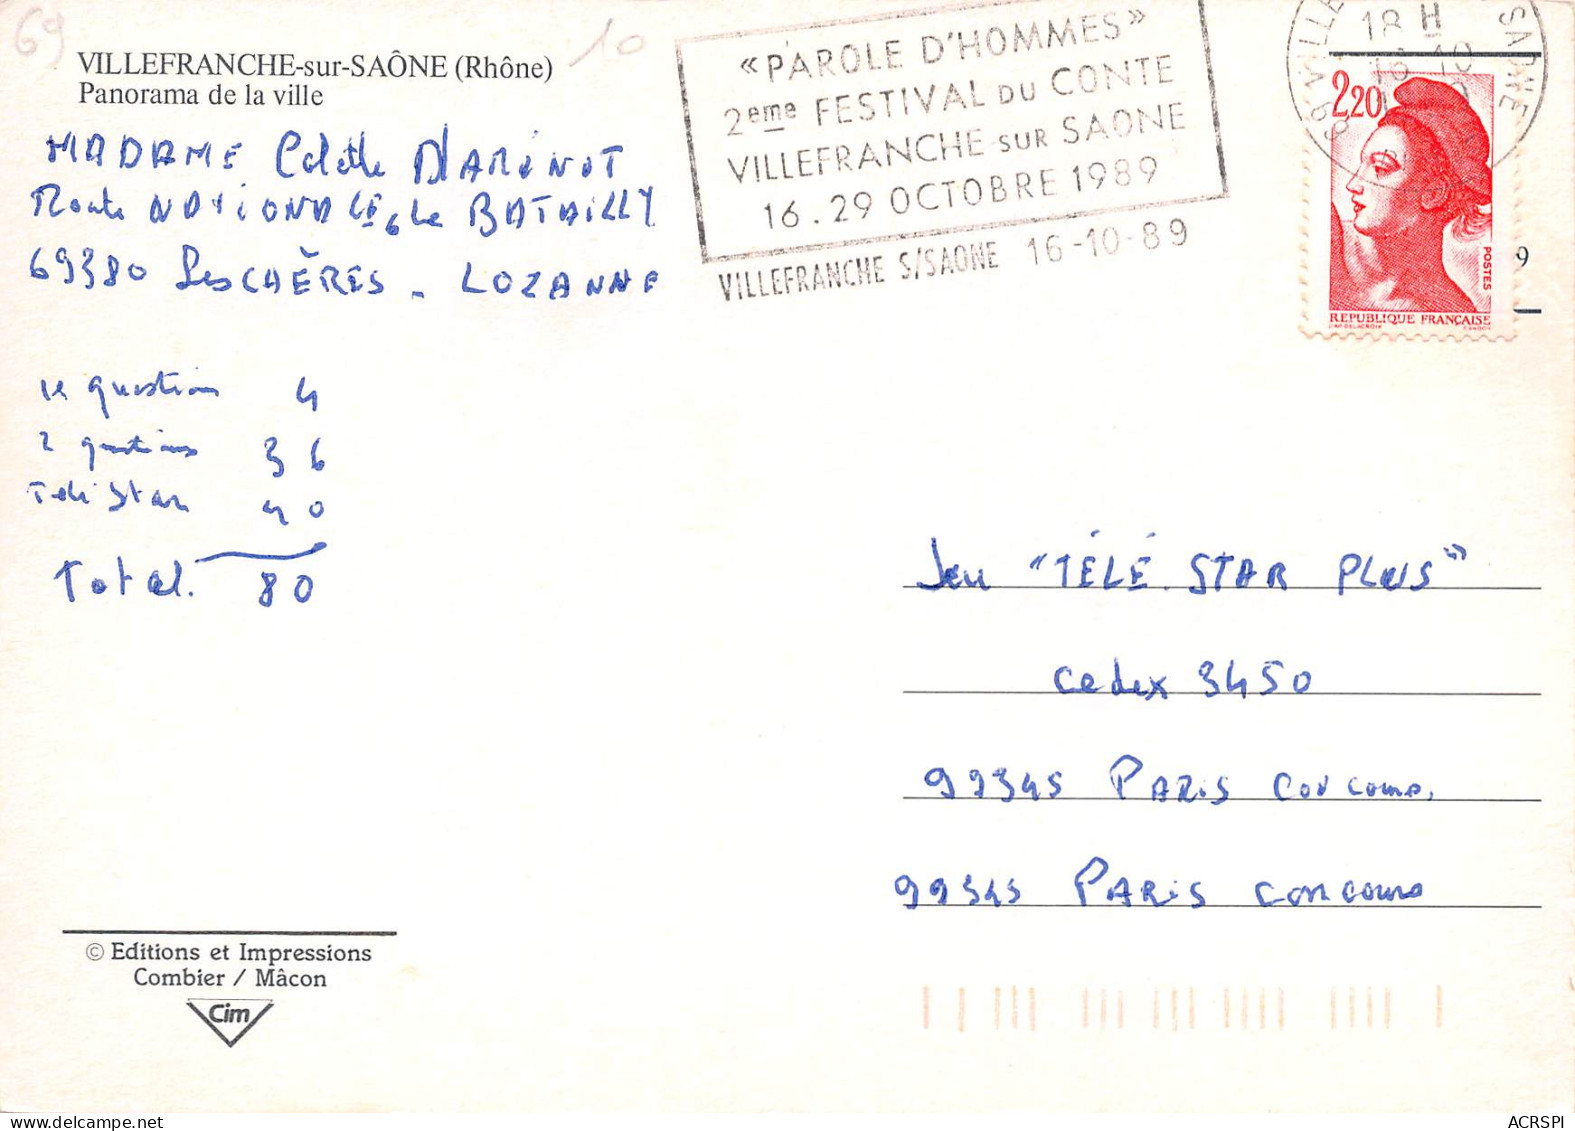 69
10
VILLEFRANCHE-sur-SAÔNE (Rhône)
Panorama de la ville
MADAME Colette
Route NATIONALE 6 Le BATAILLY
69380 Les CHÈRES - LOZANNE
1e question 4
2 questions 36
Télé Star 40
Total. 80
« PAROLE D'HOMMES »
2eme FESTIVAL DU CONTE
VILLEFRANCHE SUR SAONE
16.29 OCTOBRE 1989
VILLEFRANCHE S/SAONE 16-10-89
18 H
2,20
POSTES
REPUBLIQUE FRANÇAISE
D'AP. DELACROIX GANDON
9
Jeu "TÉLÉ STAR PLUS"
Cedex 3450
99345 PARIS Concours.
99345 PARIS Concours
© Editions et Impressions
Combier / Mâcon
Cim
ACRSPI